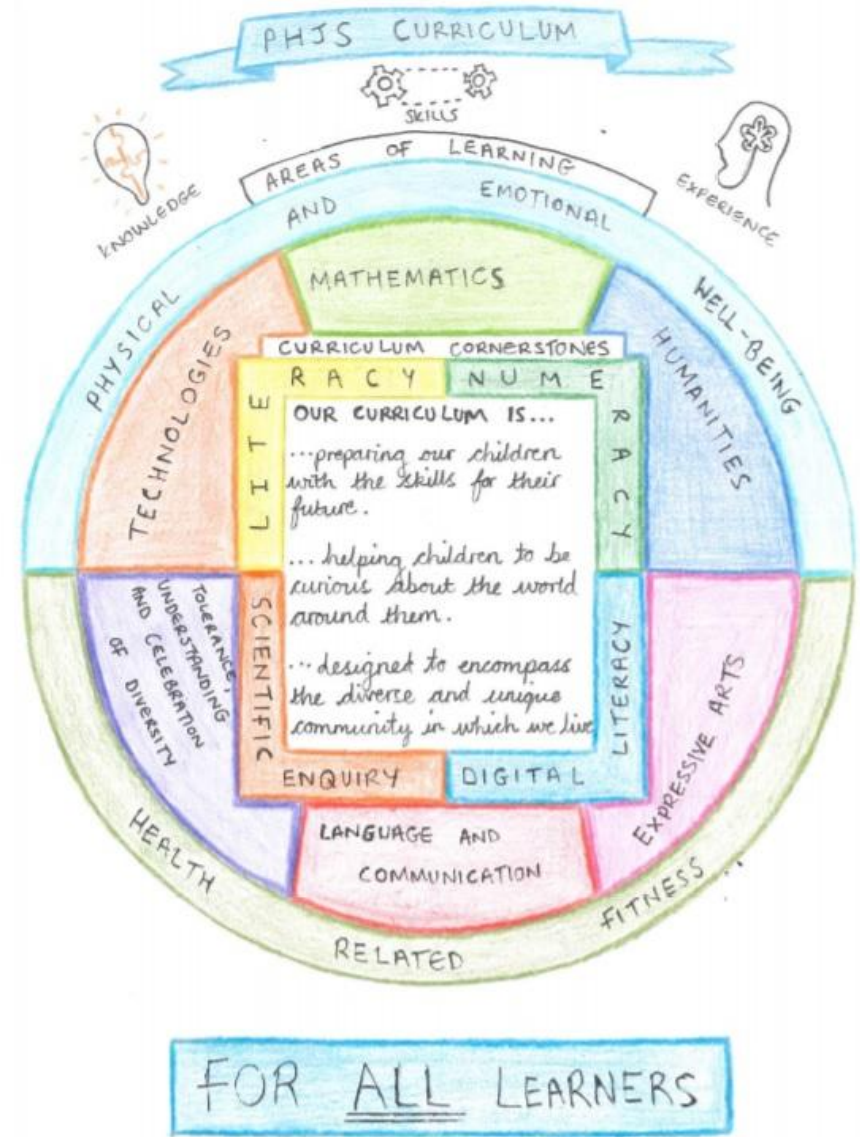 PHJS CURRICULUM
SKILLS
KNOWLEDGE
EXPERIENCE
AREAS OF LEARNING
PHYSICAL AND EMOTIONAL WELL-BEING
MATHEMATICS
TECHNOLOGIES
HUMANITIES
CURRICULUM CORNERSTONES
LITERACY
NUMERACY
OUR CURRICULUM IS...
...preparing our children
with the skills for their
future.
...helping children to be
curious about the world
around them.
...designed to encompass
the diverse and unique
community in which we live
SCIENTIFIC
ENQUIRY
DIGITAL
LITERACY
TOLERANCE,
UNDERSTANDING
AND CELEBRATION
OF DIVERSITY
EXPRESSIVE ARTS
LANGUAGE AND
COMMUNICATION
HEALTH RELATED FITNESS
FOR ALL LEARNERS